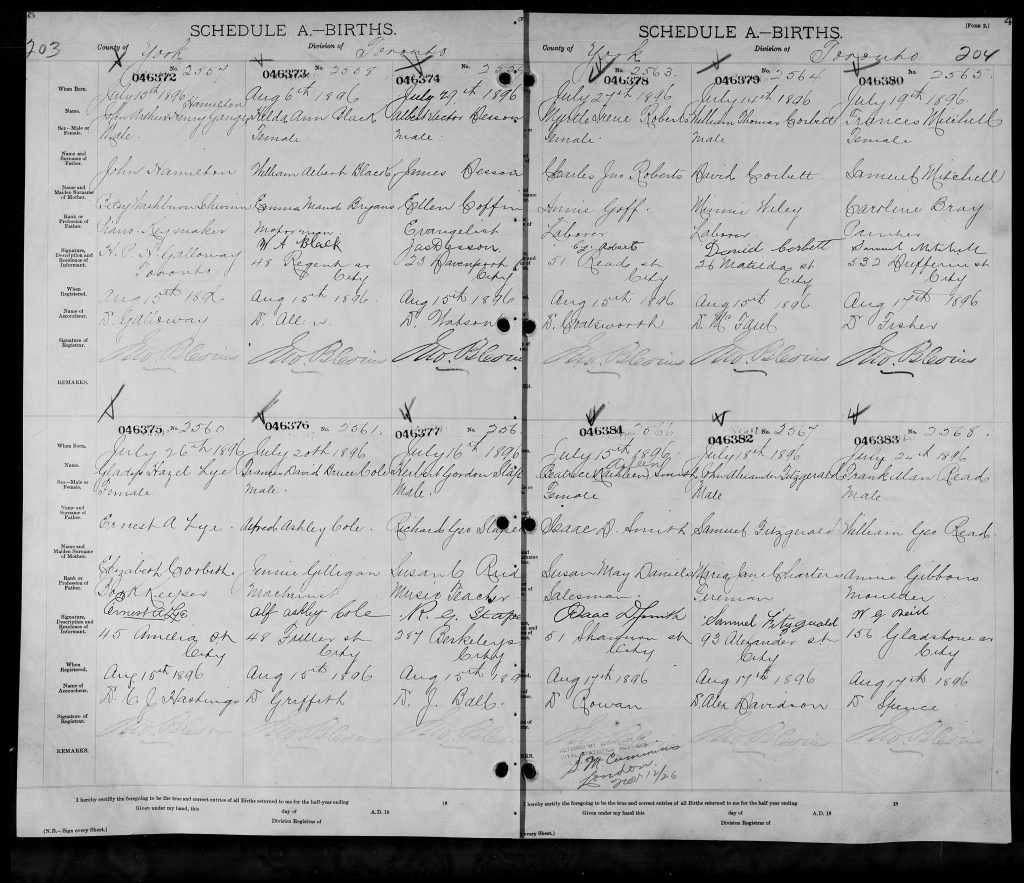 SCHEDULE A.—BIRTHS.
203
County of York Division of Toronto
046372 No. 2557
046373 No. 2558
046374 No.
When Born. July 15th 1896 Aug 6th 1896 July 29th 1896
Name. Hamilton
John Arthur Ann Black Albert Victor
Sex—Male or Female. Male Female Male
Name and Surname of Father. John Hamilton William Albert Black James Desson
Name and Maiden Surname of Mother. Betsy Washburn Emma Maud Bryans Ellen Coffin
Rank or Profession of Father. Piano Keymaker Motorman Evangelist
Signature, Description and Residence of Informant. Galloway W A Black Jas Desson
Toronto 48 Regent 23 Davenport
City City
When Registered. Aug 15th 189 Aug 15th 1896 Aug 15th 1896
Name of Accoucheur. D. Galloway D. Allen D. Watson
Signature of Registrar. Jno. P. Blevins Jno. P. Blevins Jno. P. Blevins
REMARKS.
046375 No. 2560
046376 No. 2561.
046377 No. 256
When Born. July 26th 1896 July 20th 1896 July 16th 1896
Name. Gladys Hazel Lye David Bruce Cole Herbert Gordon
Sex—Male or Female. Female Male. Male.
Name and Surname of Father. Ernest A Lye. Alfred Ashley Cole. Richard Geo
Name and Maiden Surname of Mother. Elizabeth Corbett. Jennie Gilligan Susan C Reid
Rank or Profession of Father. Book Keeper Machinist Music Teacher
Signature, Description and Residence of Informant. Ernest A Lye Alf Ashley Cole R. G.
45 Amelia St 48 Fuller st 287 Berkeley
City City City
When Registered. Aug 15th 1896 Aug 15th 1896 Aug 15th 189
Name of Accoucheur. D. C. J. Hastings D Griffith D. J. Ball.
Signature of Registrar.
REMARKS.
I hereby certify the foregoing to be the true and correct entries of all Births returned to me for the half-year ending 18
Given under my hand, this day of A.D. 18
Division Registrar of
(N.B.—Sign every Sheet.)
SCHEDULE A.—BIRTHS.
(Form 2.)
204
County of York Division of Toronto
046378 No. 2563.
046379 No. 2564
046380 No. 2565.
July 27th 1896 July 14th 1896 July 19th 1896
Myrtle Irene Roberts William Thomas Corbett Frances Mitchell
Female. Male Female
Charles Jno Roberts David Corbett Samuel Mitchell
Annie Goff. Minnie Wiley Caroline Bray
Laborer Laborer Painter
David Corbett Samuel Mitchell
51 Read st 26 Matilda st 532 Dufferin st
City City City
Aug 15th 1896 Aug 15th 1896 Aug 17th 1896
D. Coatsworth D. McFaul D Fisher
Jno. P. Blevins Jno. P. Blevins Jno. P. Blevins
046381 2566
046382 2567
046383 No. 2568.
July 15th 1896. July 18th 1896 July 2 1896
Beatrice Kathleen Smith John Alexander Fitzgerald Frank Allan Read
Female Male Male
Isaac D. Smith Samuel Fitzgerald William Geo Read.
Susan May Daniels Maria Jane Charters Annie Gibbons
Salesman. Fireman Moulder
Isaac D Smith Samuel Fitzgerald W G Reid
51 Shannon st 93 Alexander st 156 Gladstone av
City City City
Aug 17th 1896 Aug 17th 1896 Aug 17th 1896
D Rowan D. Alex Davidson D Spence
London
12/26
I hereby certify the foregoing to be the true and correct entries of all Births returned to me for the half-year ending 18
Given under my hand, this day of A.D. 18
Division Registrar of
every Sheet.)